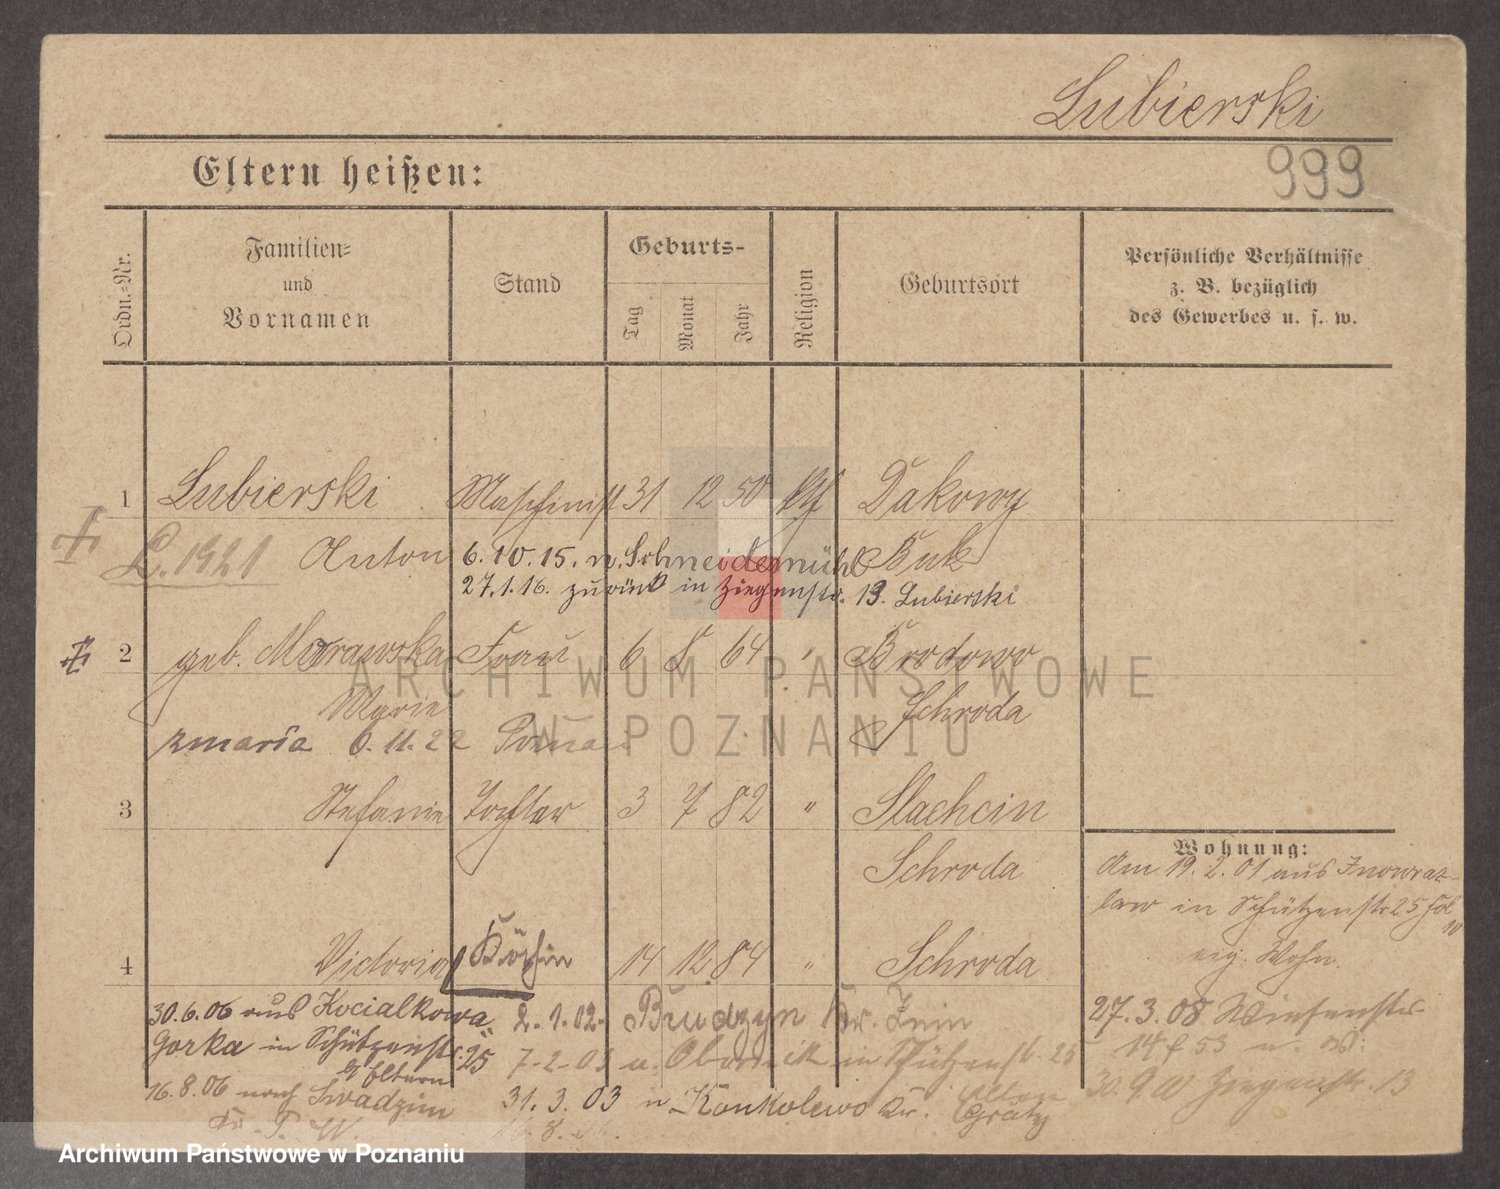 Lubierski
999
Eltern heißen:
Ordn.-Nr.
Familien-
und
Vornamen
Stand
Geburts-
Tag
Monat
Jahr
Religion
Geburtsort
Persönliche Verhältnisse
z. B. bezüglich
des Gewerbes u. s. w.
1 Lubierski Maschinist 31 12 50 kth Dakowy
L. 1921 Anton 6. 10. 15. n. Schneidemühl Buk
27.1.16. zurück in Ziegenstr. 13. Lubierski
2 geb. Morawska Frau 6 8 64 " Brodowo
Marie Schroda
zmarła 6.11.22
3 Stefanie Tochter 3 7 82 " Slachcin
Schroda
Wohnung:
Am 19.2.01 aus Inowraz-
law in Schützenstr 25
eig. Wohn.
4 Victoria Köchin 14 12 84 " Schroda
30.6.06 aus Kocialkowa
Gorka in Schützenstr. 25
b/ Eltern
16.8.06 nach Swadzim
Kr. P. W.
2.1.02. Budzyn Kr. Znin
7.2.03 a. Obornik in Schützenst. 25
Eltern
31.3.03 n Konkolewo Kr. Grätz
27.3.08 Wiesenstr.
30.9.10 Ziegenstr. 13
ARCHIWUM PAŃSTWOWE
W POZNANIU
Archiwum Państwowe w Poznaniu